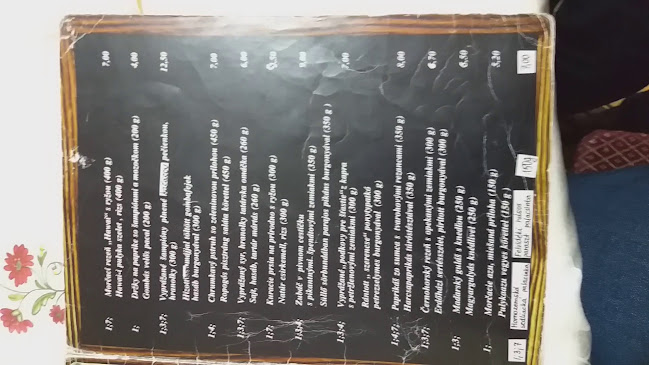 1;7; Morčací rezeň „Hawai" s ryžou (400 g) 7,00
Hawai-i pulyka szelet , rizs (400 g)
1; Držky na paprike so šampiňónmi a mozočkom (200 g) 4,00
Gombás velős pacal (200 g)
1;3;7; Vyprážané šampiny plnené pečienkou, 12,50
hranolky (300 g)
májjal töltött gombafejek
hasáb burgonyával (300 g)
1;4; Chrumkavý pstruh so zeleninovou prílohou (450 g) 7,00
Ropogós pisztráng saláta körettel (450 g)
1;3;7; Vyprážaný syr, hranolky tatárska omáčka (260 g) 6,00
Sajt, hasáb, tartár mártás (260 g)
1;7; Kuracie prsia na prírodno s ryžou (300 g)
Natúr csirkemell, rizs (300 g)
1;3;4; Zubáč v pivnom cestíčku 9,00
s pikantnými, zemiakmi (350 g)
Süllő sörbundában parajos pikáns burgonyával (350 g )
1;3;4; Vyprážané „podkovy pre šťastie" z kapra 7,00
s petržlenovými zemiakmi (300 g)
Rántott „ szerencse" pontypatkó
petrezselymes burgonyával (300 g)
1;4;7; Paprikáš zo sumca s tvarohovými rezancami (350 g) 8,00
Harcsapaprikás túróstésztával (350 g)
1;3;7; Čertnohorský rezeň s opekanými zemiakmi (300 g) 6,70
Erdőházi sertésszelet, pirított burgonyával (300 g)
1;3; Maďarský guláš s knedľou (250 g) 6,50
Magyargulyás knédlivel (250 g)
1; Morčacie azu, miešaná príloha (350 g) 5,20
Pulykaazu vegyes körettel (350 g )
1,3,7 150g 7,00